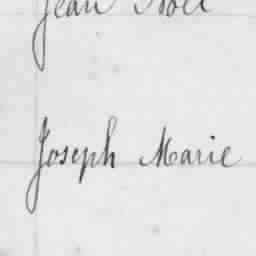 Jean Noël
Joseph Marie